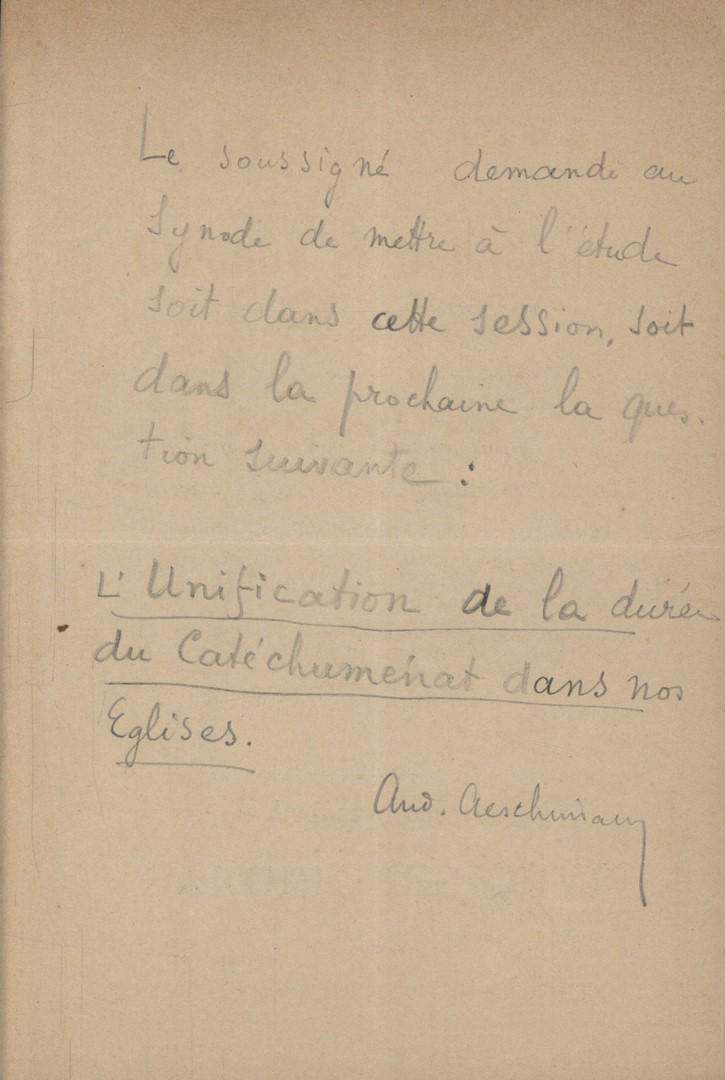 Le soussigné demande au
Synode de mettre à l'étude
soit dans cette session, soit
dans la prochaine la ques-
tion suivante :
L'Unification de la durée
du Catéchuménat dans nos
Eglises.
And. Aeschimann